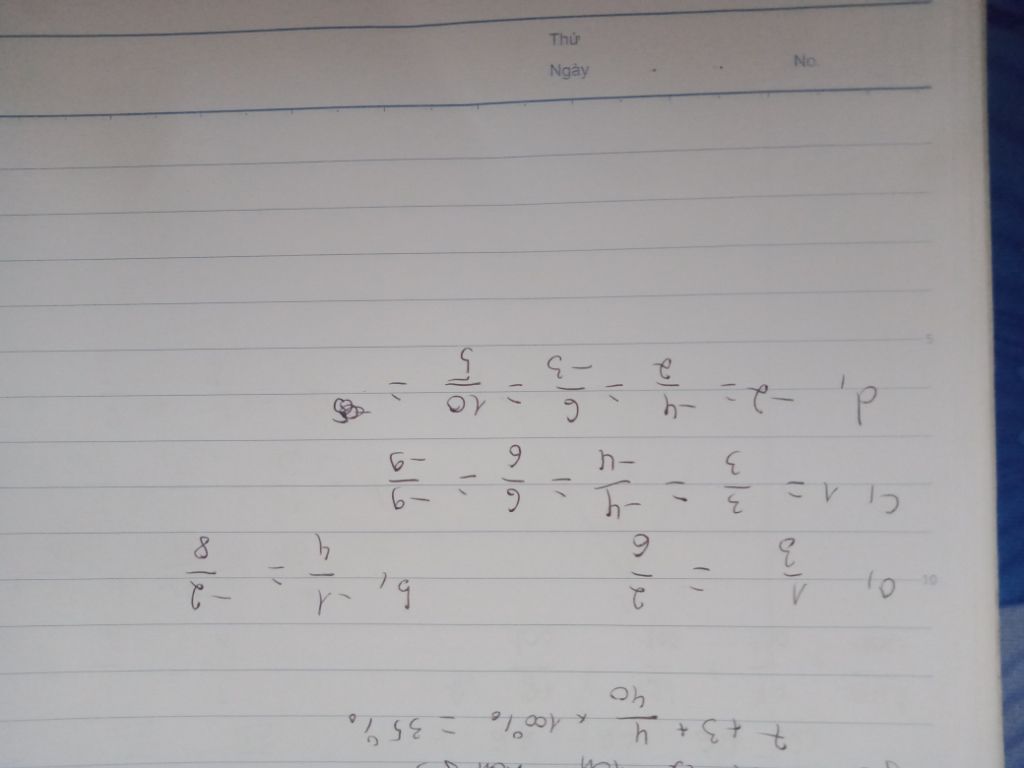 Thứ
Ngày
No.
7 + 3 + 4/40 x 100% = 35%
a, 1/3 = 2/6 b, -1/4 = -2/8
c, 1 = 3/3 = -4/-4 = 6/6 = -9/-9
d, -2 = -4/2 = 6/-3 = 10/5 =
5
10